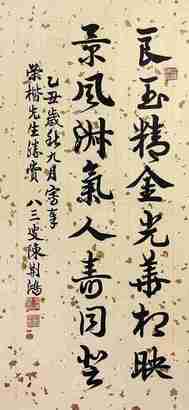 良玉精金光華相映
景風淑氣人壽同登
乙丑歲秋九月寫奉
榮楷先生清賞 八三叟陳荆鴻